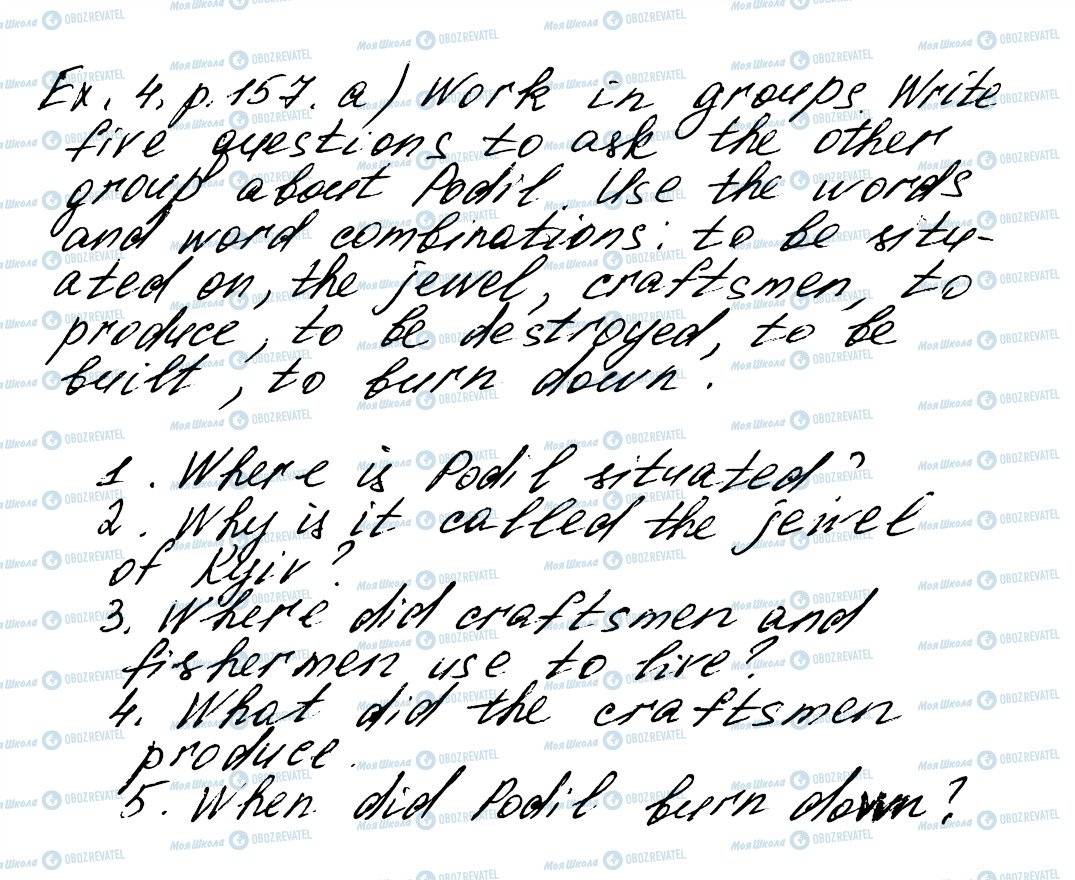 Ex. 4. p. 157. a) Work in groups. Write
five questions to ask the other
group about Podil. Use the words
and word combinations: to be situ-
ated on, the jewel, craftsmen, to
produce, to be destroyed, to be
built, to burn down.
1. Where is Podil situated?
2. Why is it called the jewel
of Kyiv?
3. Where did craftsmen and
fishermen use to live?
4. What did the craftsmen
produce.
5. When did Podil burn down?